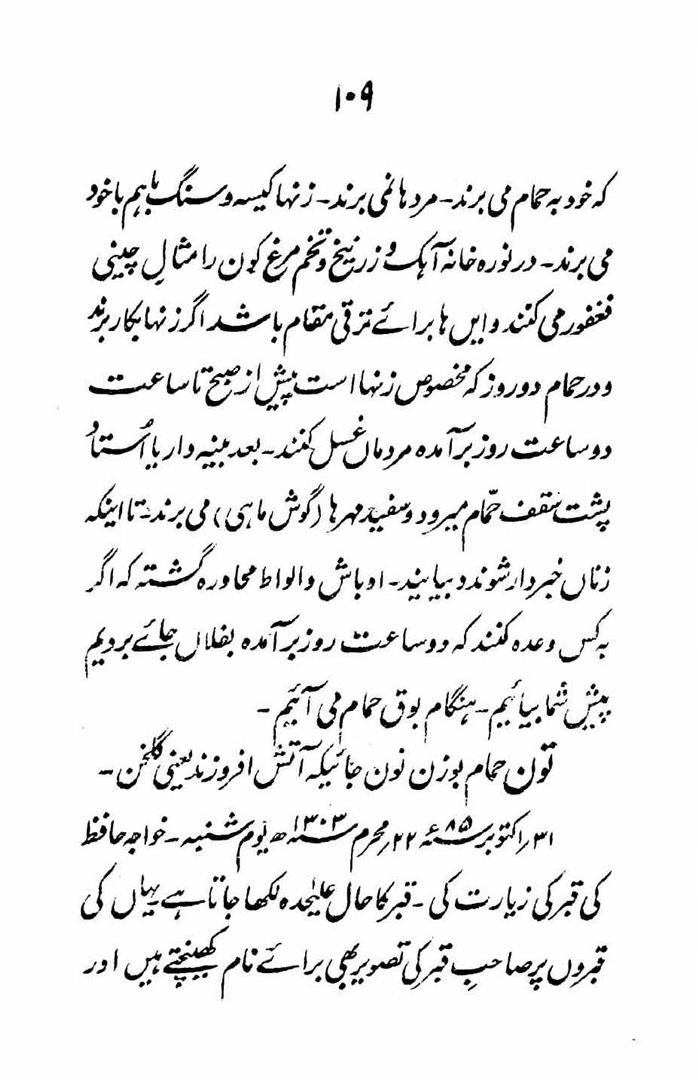 ۱۰۹
که خود به حمام می برند۔ مرد ها نمی برند۔ زنها کیسه و سنگ باهم با خود
می برند۔ در نوره خانه آهک و زرنیخ و تخم مرغ کون را مثالِ چینی
فغفور می کنند و ایں ها برائے ترقی مقام باشد اگر زنها بکار برند
و در حمام دو روز که مخصوص زنها است پیش از صبح تا ساعت
دو ساعت روز برآمده مردماں غسل کنند۔ بعد پنبه دار یا اُستاد
پشت سقف حمّام میرود و سفید مهرها (گوش ماهی) می برند۔ تا اینکه
زناں خبردار شوند و بیایند۔ اوباش و الواط محاوره گشته که اگر
به کس وعده کنند که دو ساعت روز برآمده بفلاں جائے برویم
پیش شما بیائیم۔ هنگام بوق حمام می آئیم۔
توں حمام بوزن نون جائیکه آتش افروزند یعنی گلخن۔
۳۱؍ اکتوبر سنه ۸۵ء ۲۲؍ محرم سنه ۱۳۰۳ھ یوم شنبه۔ خواجہ حافظ
کی قبر کی زیارت کی۔ قبر کا حال علیٰحدہ لکھا جاتا ہے یہاں کی
قبروں پر صاحبِ قبر کی تصویر بھی برائے نام کھینچتے ہیں اور